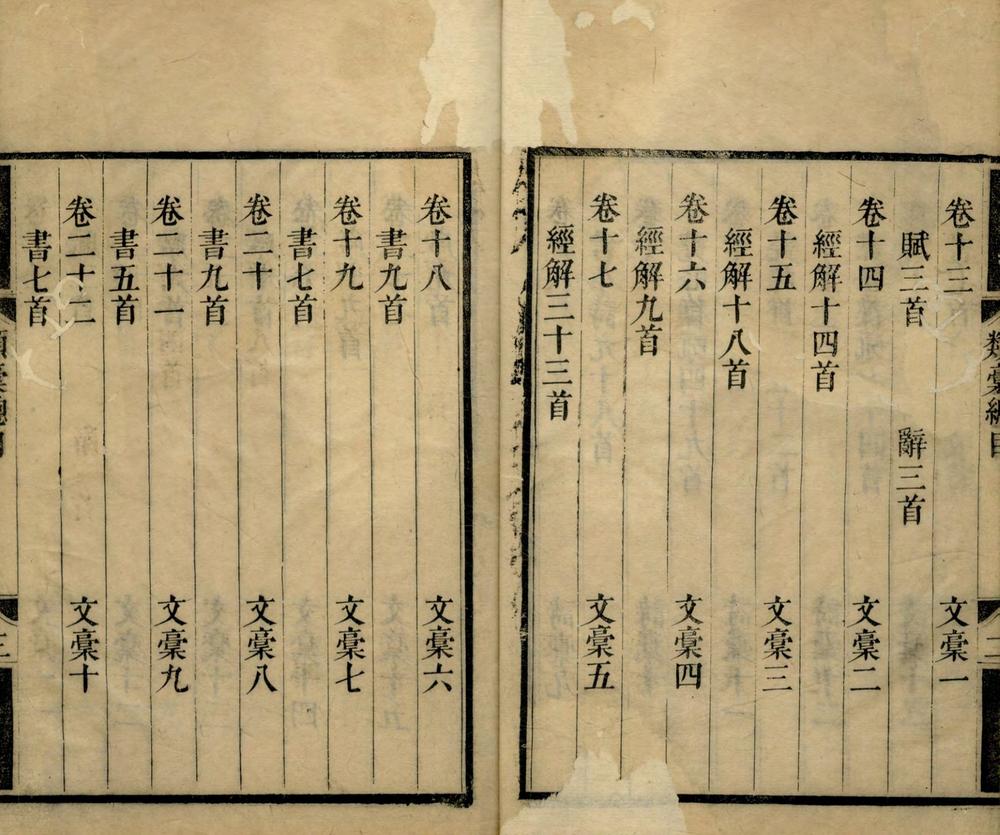 類稾總目
二
卷十三 文稾一
賦三首 辭三首
卷十四 文稾二
經解十四首
卷十五 文稾三
經解十八首
卷十六 文稾四
經解九首
卷十七 文稾五
經解三十三首
卷十八 文稾六
書九首
卷十九 文稾七
書七首
卷二十 文稾八
書九首
卷二十一 文稾九
書五首
卷二十二 文稾十
書七首
類稾總目